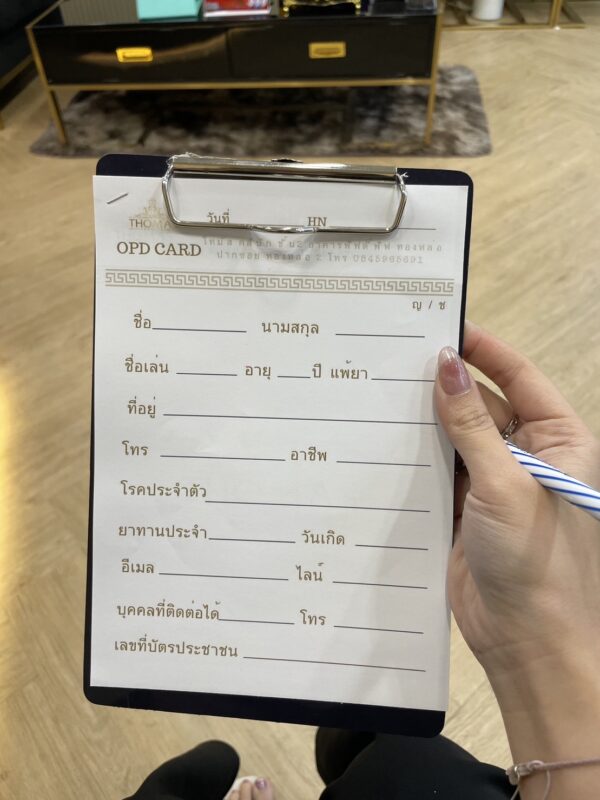 วันที่ HN
THOMA
OPD CARD
ปากซอย ทองหล่อ 2 โทร 0845965691
ญ / ช
ชื่อ นามสกุล
ชื่อเล่น อายุ ปี แพ้ยา
ที่อยู่
โทร อาชีพ
โรคประจำตัว
ยาทานประจำ วันเกิด
อีเมล ไลน์
บุคคลที่ติดต่อได้ โทร
เลขที่บัตรประชาชน